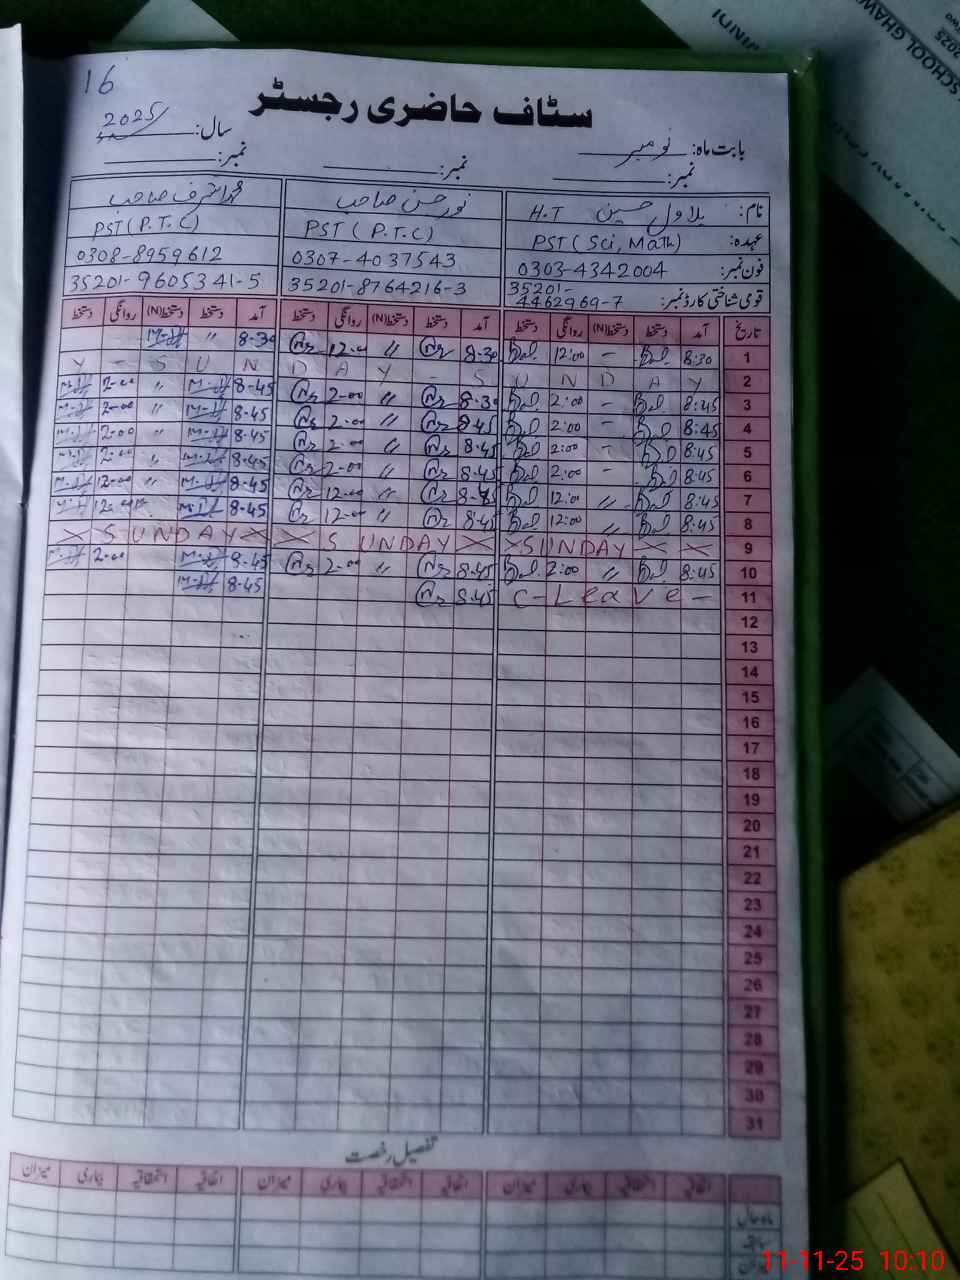 16
سٹاف حاضری رجسٹر
بابت ماہ: نومبر سال: 2025
نمبر: نمبر: نمبر:
نام: بلاول حسین H.T نور حسن صاحب محمد اشرف صاحب
عہدہ: PST (Sci, Math) PST ( P.T.C) PST ( P.T.C)
فون نمبر: 0303-4342004 0307-4037543 0308-8959612
قومی شناختی کارڈ نمبر: 35201-4462969-7 35201-8764216-3 35201-9605341-5
تاریخ آمد دستخط دستخط(N) روانگی دستخط آمد دستخط دستخط(N) روانگی دستخط آمد دستخط دستخط(N) روانگی دستخط
1 8:30 – 12:00 8-30 〃 12-00 8-30 〃
2 S U N D A Y - S U N D A Y
3 8:45 – 2:00 8-30 〃 2-00 8-45 〃 2-00
4 8:45 – 2:00 8-45 〃 2-00 8-45 〃 2-00
5 8:45 – 2:00 8-45 〃 2-00 8-45 〃 2-00
6 8:45 – 2:00 8-45 〃 2-00 8-45 〃 2-00
7 8:45 〃 12:00 8-45 〃 12-00 8-45 〃 12-00
8 8:45 〃 12:00 8-45 〃 12-00 8-45 12-00
9 X SUNDAY X X X SUNDAY X X SUNDAY X X
10 8:45 〃 2:00 8-45 〃 2-00 8-45 2-00
11 C-Leave – 8-45 8-45
12
13
14
15
16
17
18
19
20
21
22
23
24
25
26
27
28
29
30
31
تفصیل رخصت
اتفاقیہ استحقاقیہ بیماری میزان اتفاقیہ استحقاقیہ بیماری میزان اتفاقیہ استحقاقیہ بیماری میزان
ماہ حال
سابقہ
SCHOOL GHAW
2025
11-11-25 10:10